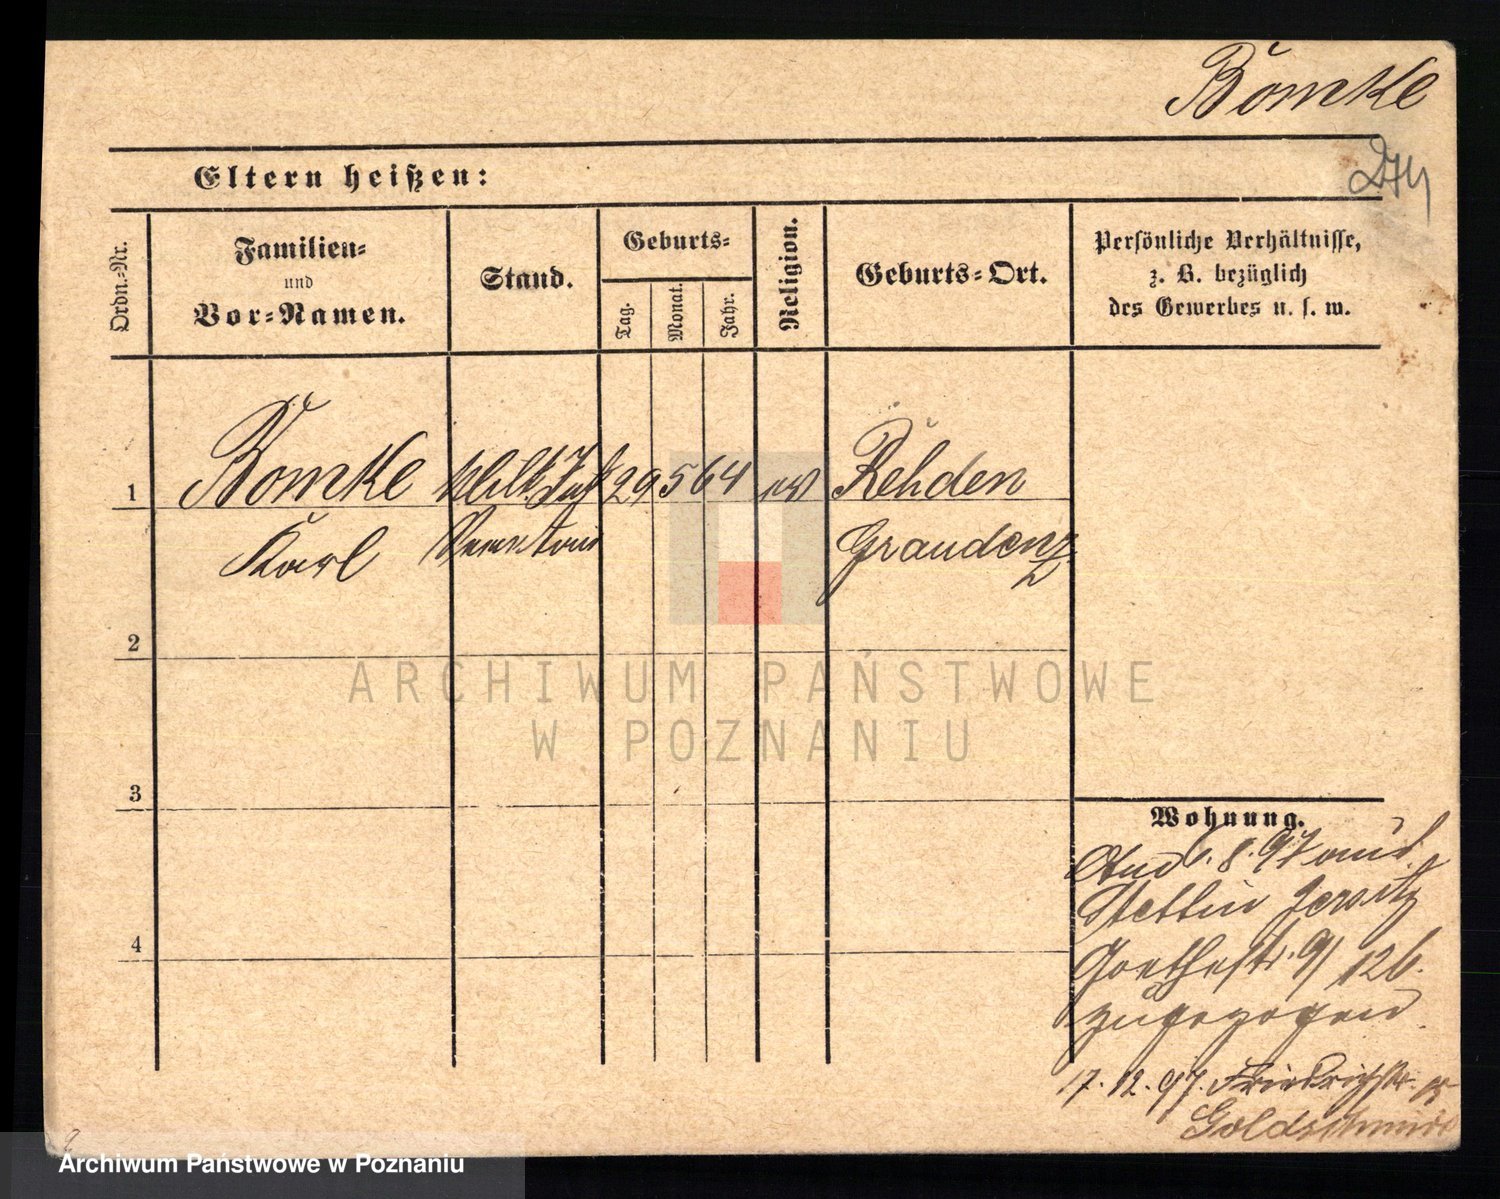 Bömke
274
Eltern heißen:
Ordn.=Nr.
Familien=
und
Vor=Namen.
Stand.
Geburts=
Tag.
Monat.
Jahr.
Religion.
Geburts=Ort.
Persönliche Verhältnisse,
z. B. bezüglich
des Gewerbes u. s. w.
1 Bömke 29 5 64 ev Rehden
Karl Graudenz
2
3
4
Wohnung.
6. 8. 97 aus
Stettin Jersitz
Goethestr. 9/12 b.
zugezogen
17. 12. 97. Friedrichstr.
Goldschmidt
ARCHIWUM PAŃSTWOWE
W POZNANIU
Archiwum Państwowe w Poznaniu